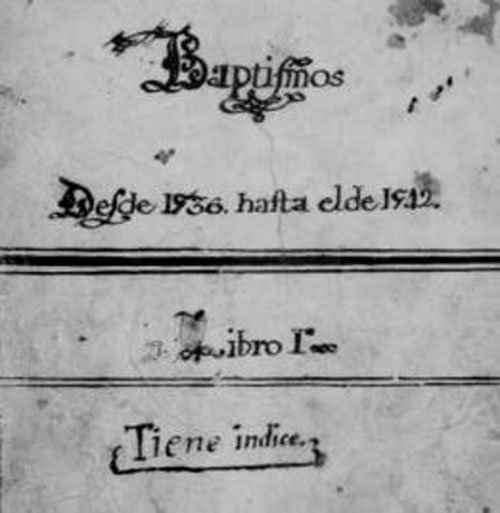 Baptismos
Desde 1536. hasta el de 1542.
Libro I
Tiene indice.